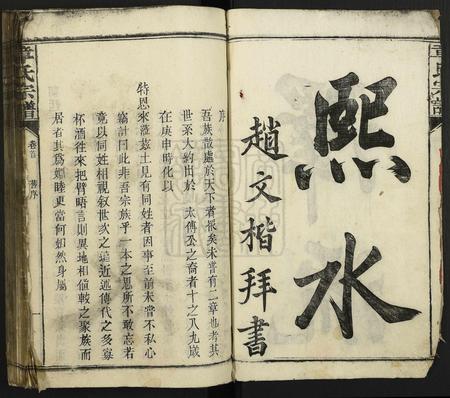 章氏宗譜
熙水
趙文楷拜書
序
吾族散處於天下者衆矣未嘗有二章也考其
世系大約出於 太傅公之裔者十之八九歲
在庚申時化以
特恩來蒞茲土見有同姓者因事至前未嘗不私心
竊計曰此非吾宗族乎一本之恩所不敢忘者
竟以同姓相視叙世次之遠近述傳代之多寡
杯酒往來把臂唔言則異地相値較之聚族而
居者其爲婣睦更當何如然身屬
章氏宗譜
卷首
舊序